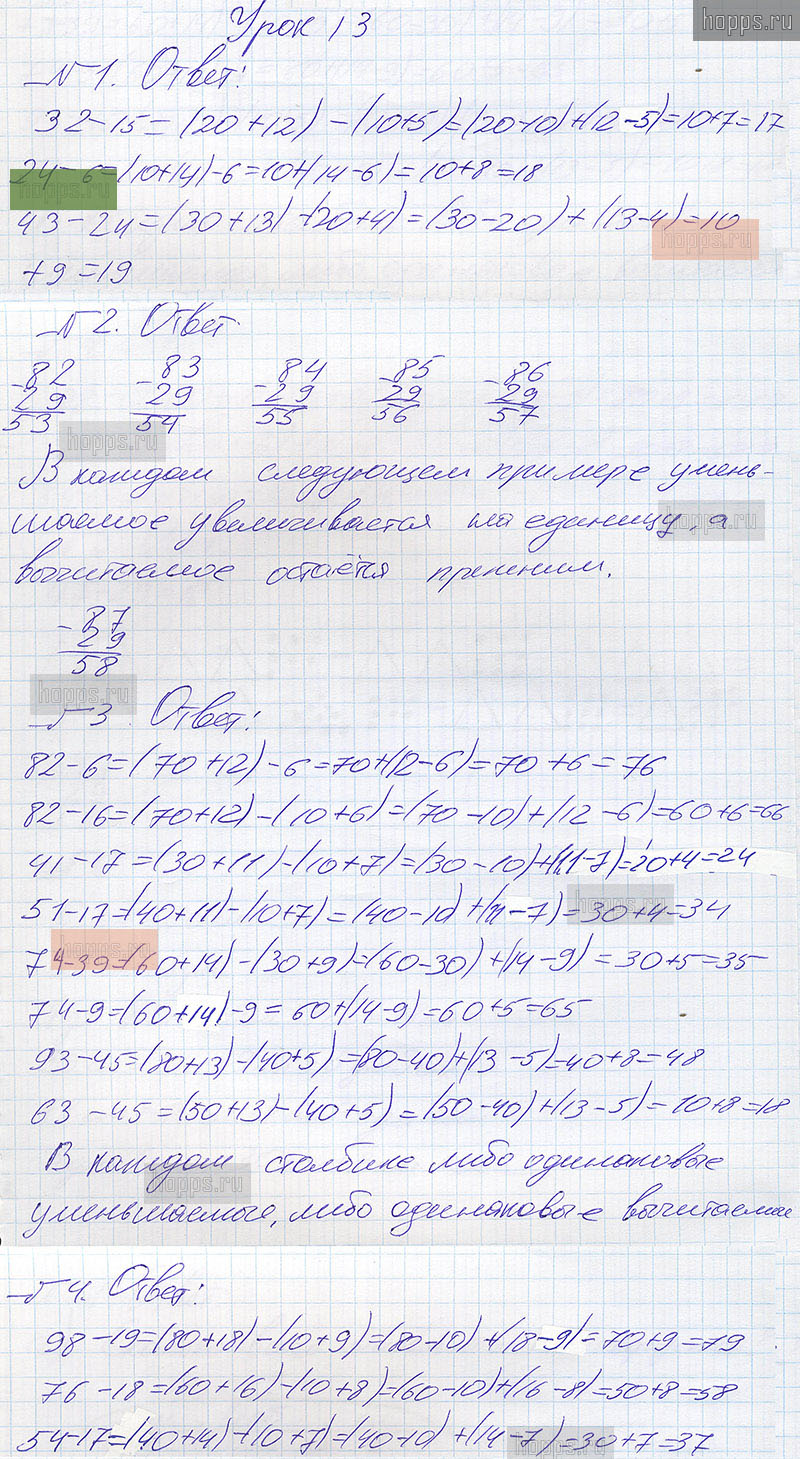 hopps.ru
Урок 13
№1. Ответ:
32-15=(20+12)-(10+5)=(20-10)+(12-5)=10+7=17
24-6=(10+14)-6=10+(14-6)=10+8=18
hopps.ru
43-24=(30+13)-(20+4)=(30-20)+(13-4)=10
hopps.ru
+9=19
№2. Ответ
-82 -83 -84 -85 -86
29 29 29 29 29
53 54 55 56 57
hopps.ru
В каждом следующем примере умень-
шаемое увеличивается на единицу, а
hopps.ru
вычитаемое остаётся прежним.
-87
29
58
hopps.ru
№3 Ответ:
82-6=(70+12)-6=70+(12-6)=70+6=76
82-16=(70+12)-(10+6)=(70-10)+(12-6)=60+6=66
41-17=(30+11)-(10+7)=(30-10)+(11-7)=20+4=24
hopps.ru
51-17=(40+11)-(10+7)=(40-10)+(11-7)=30+4=34
hopps.ru
74-39=(60+14)-(30+9)=(60-30)+(14-9)=30+5=35
74-9=(60+14)-9=60+(14-9)=60+5=65
93-45=(80+13)-(40+5)=(80-40)+(13-5)=40+8=48
63-45=(50+13)-(40+5)=(50-40)+(13-5)=10+8=18
В каждом столбике либо одинаковые
hopps.ru
уменьшаемые, либо одинаковые вычитаемые
№4. Ответ:
98-19=(80+18)-(10+9)=(80-10)+(18-9)=70+9=79
76-18=(60+16)-(10+8)=(60-10)+(16-8)=50+8=58
54-17=(40+14)-(10+7)=(40-10)+(14-7)=30+7=37
hopps.ru